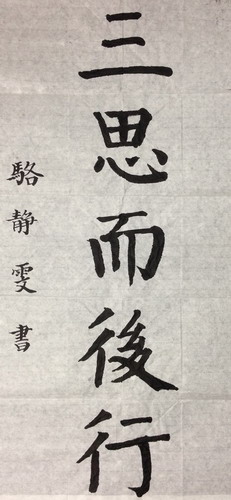 三思而後行
駱静雯書